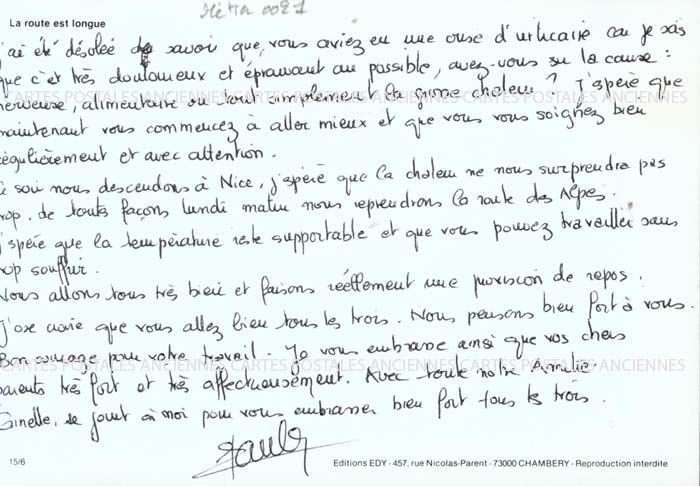 La route est longue
Métra 0021
'ai été désolée de savoir que, vous aviez eu une crise d'urticaire car je sais
que c'est très douloureux et éprouvant au possible, avez-vous su la cause :
nerveuse, alimentaire ou tout simplement la grosse chaleur ? J'espère que
CARTES POSTALES ANCIENNES CARTES POSTALES ANCIENNES
maintenant vous commencez à aller mieux et que vous vous soignez bien
régulièrement et avec attention.
Ce soir nous descendons à Nice, j'espère que la chaleur ne nous surprendra pas
trop, de toute façons lundi matin nous reprendrons la route des Alpes.
J'espère que la température reste supportable et que vous pouvez travailler sans
trop souffrir.
Nous allons tous très bien et faisons réellement une provision de repos.
J'ose croire que vous allez bien tous les trois. Nous pensons bien fort à vous.
Bon courage pour votre travail. Je vous embrasse ainsi que vos chers
CARTES POSTALES ANCIENNES CARTES POSTALES ANCIENNES
parents très fort et très affectueusement. Avec toute notre Amitié.
Ginelle, se joint à moi pour vous embrasser bien fort tous les trois.
15/6
Editions EDY - 457, rue Nicolas-Parent - 73000 CHAMBERY - Reproduction interdite